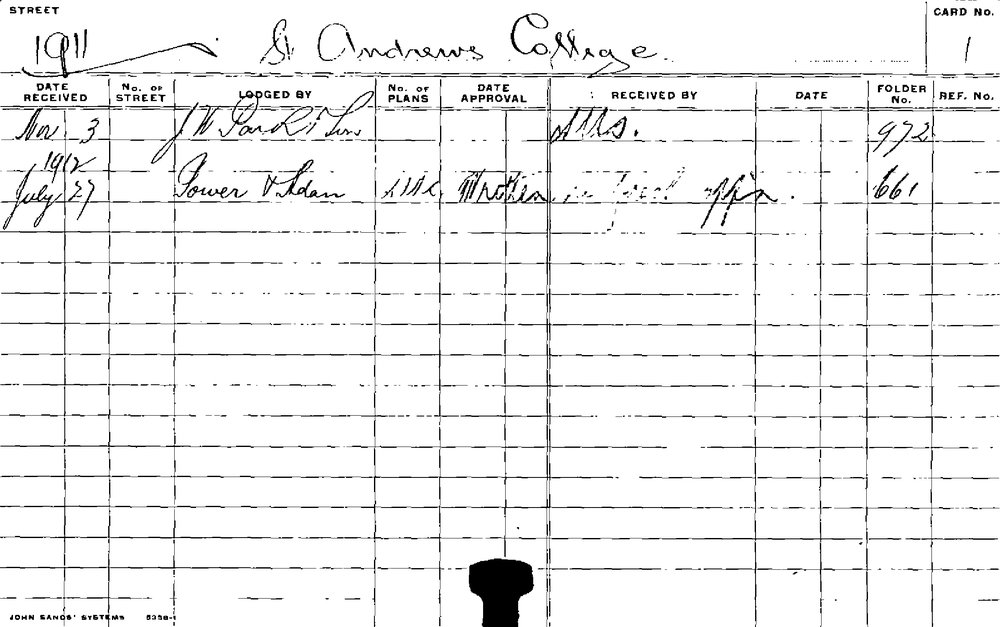 STREET
CARD No.
1911 St Andrews College 1
DATE RECEIVED No. OF STREET LODGED BY No. OF PLANS DATE APPROVAL RECEIVED BY DATE FOLDER No. REF. No.
Nov 3 J W & Son 972
1912
July 27 Power & Adam 661
JOHN SANDS' SYSTEMS